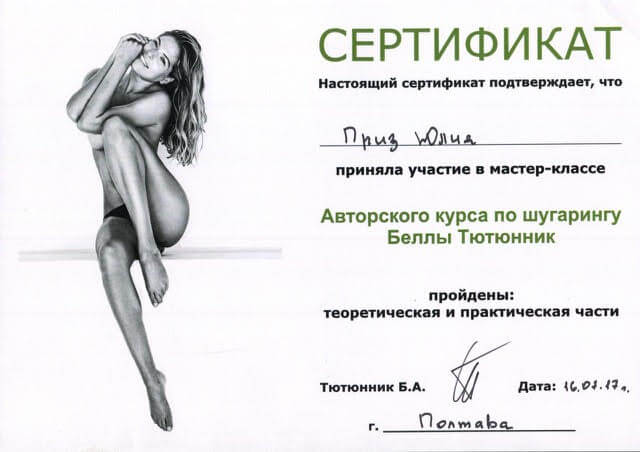 СЕРТИФИКАТ
Настоящий сертификат подтверждает, что
Приз Юлия
приняла участие в мастер-классе
Авторского курса по шугарингу
Беллы Тютюнник
пройдены:
теоретическая и практическая части
Тютюнник Б.А. Дата: 16.07.17г.
г. Полтава